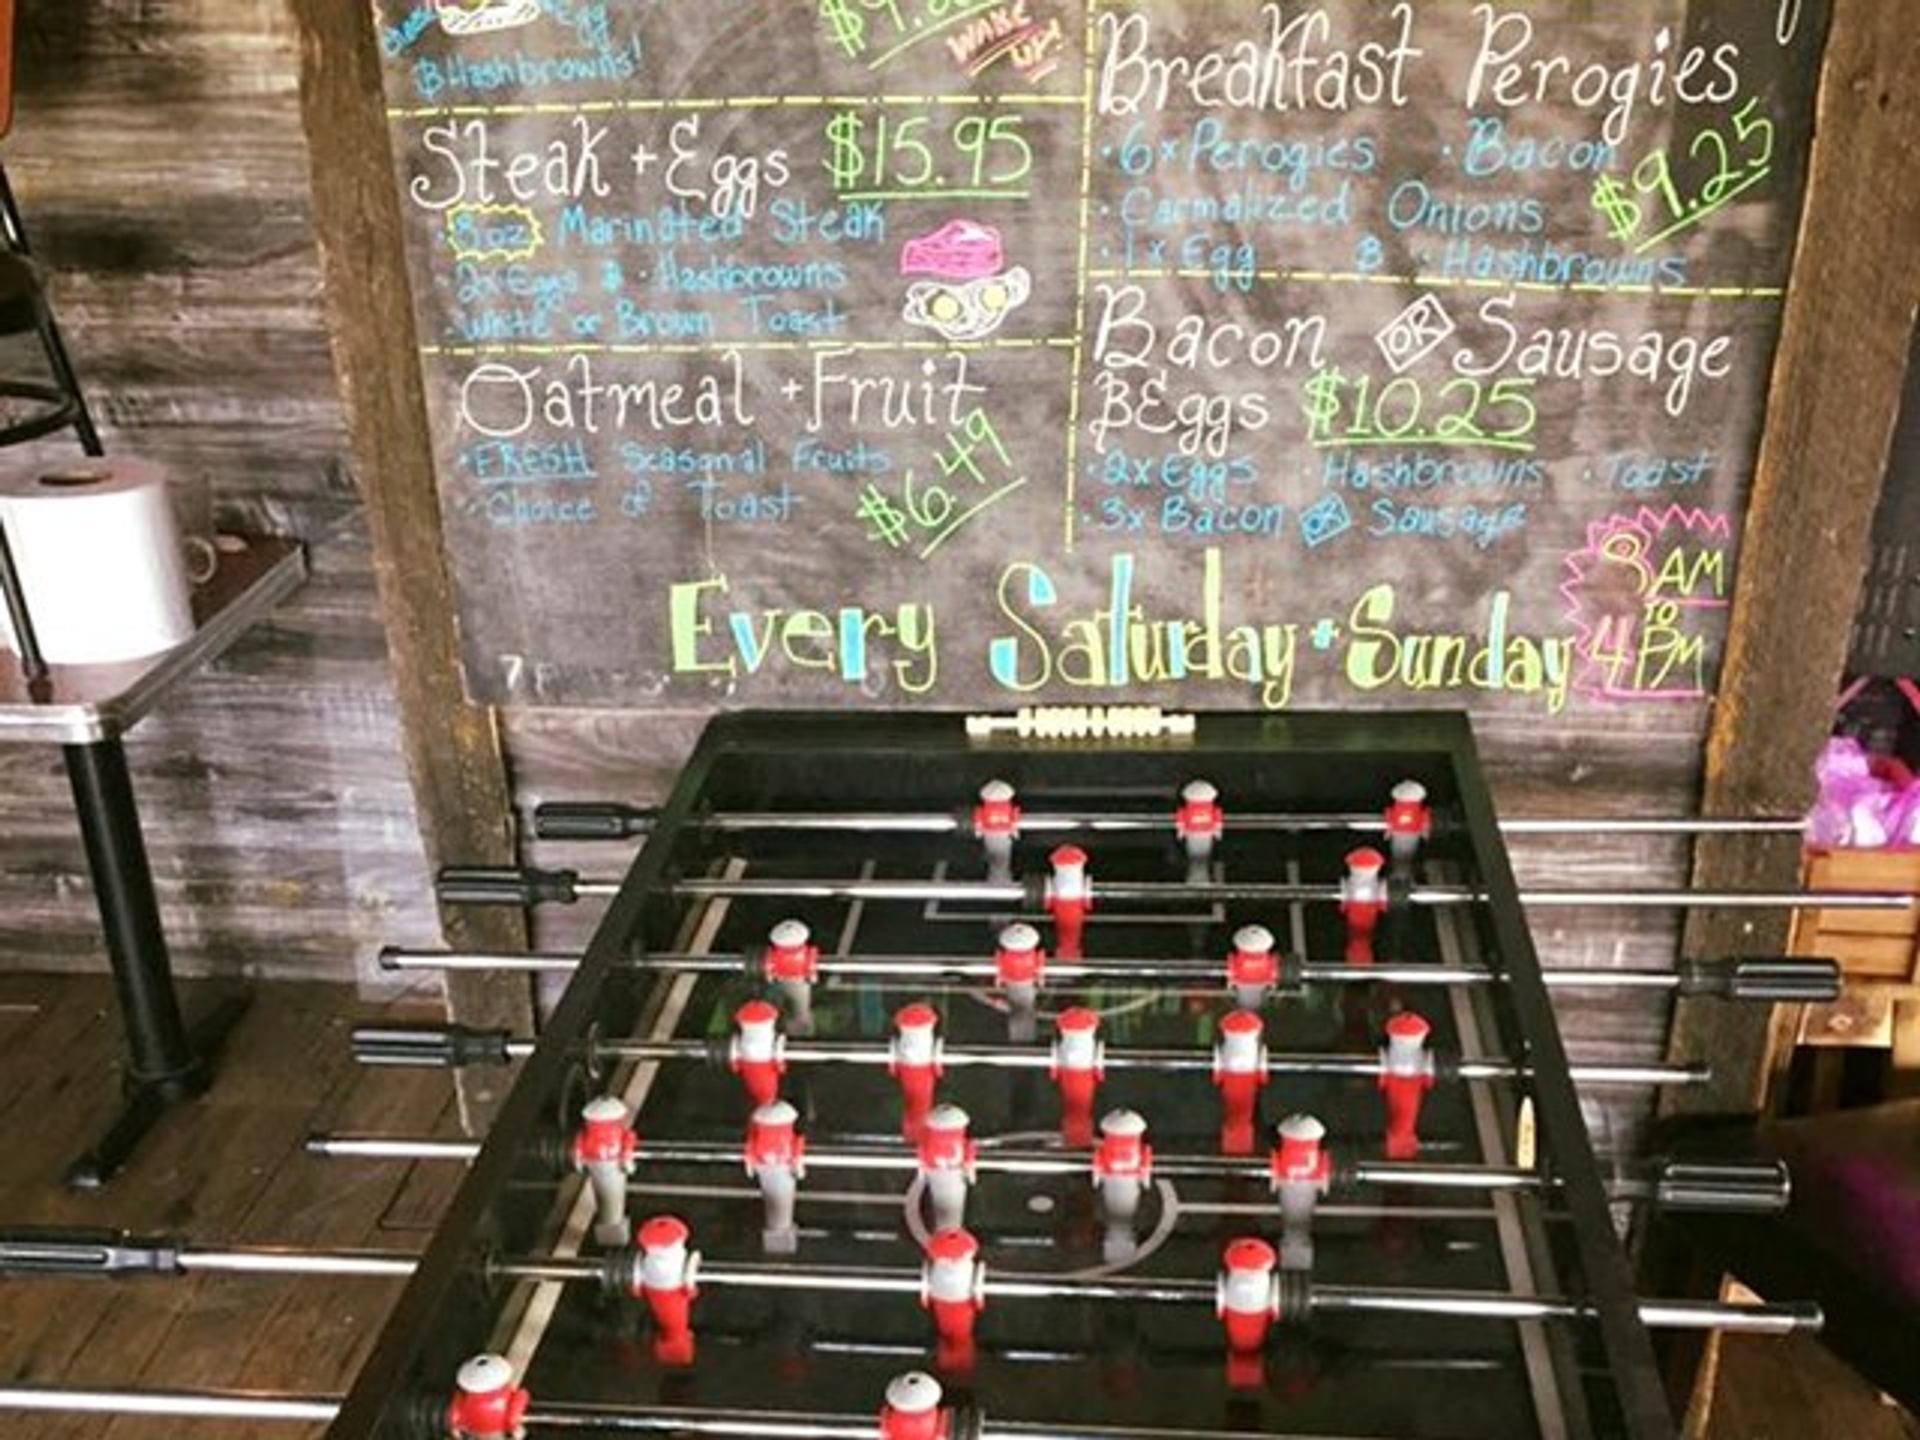 Egg
& Hashbrowns!
WAKE
UP!
Steak + Eggs $15.95
· 8oz Marinated Steak
· 2x Eggs & · Hashbrowns
· White or Brown Toast
Oatmeal + Fruit
· FRESH Seasonal Fruits
· Choice of Toast
$6.49
Breakfast Perogies
· 6x Perogies · Bacon
· Carmalized Onions
· 1x Egg & · Hashbrowns
$9.25
Bacon OR Sausage
& Eggs $10.25
· 2x Eggs · Hashbrowns · Toast
· 3x Bacon OR Sausage
Every Saturday + Sunday
8AM
TO
4PM